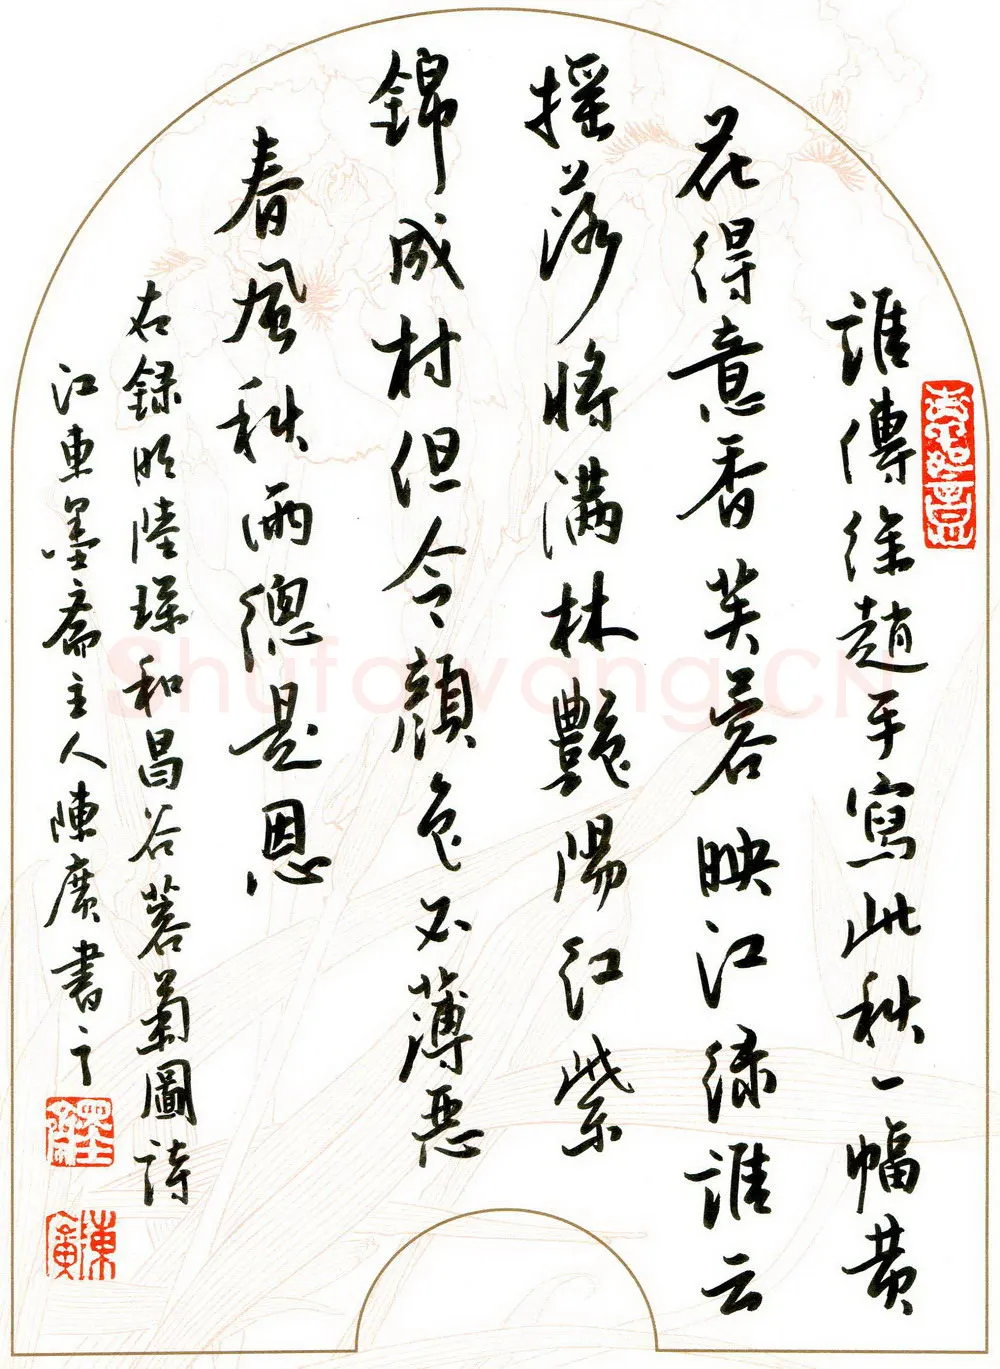 誰傳徐趙手寫此秋一幅黃
花得意香芙蓉映江綠誰云
搖落時滿林艷陽紅紫
錦成村但令顏色不薄惡
春風秋雨總是恩
右錄明陸琛和昌谷蓉菊圖詩
江東墨齋主人陳廣書之
墨齋
陳廣
Shufawang.CN